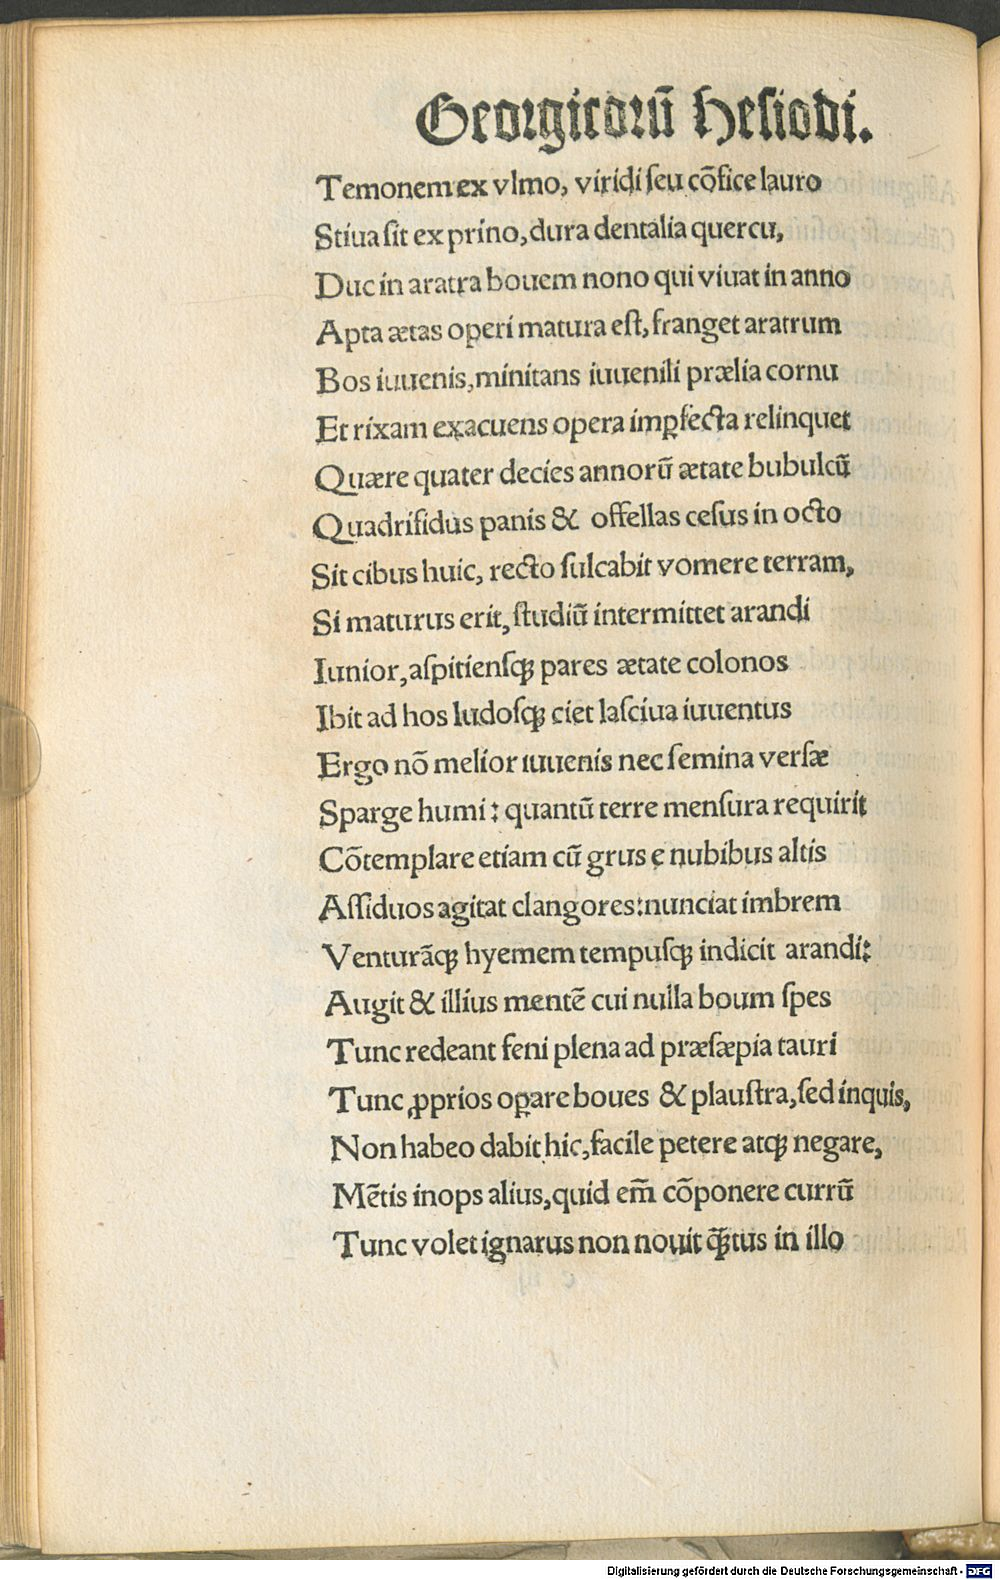 Georgicorū Heſiodi.
Temonem ex vlmo, viridi ſeu cōfice lauro
Stiua ſit ex prino, dura dentalia quercu,
Duc in aratra bouem nono qui viuat in anno
Apta ætas operi matura eſt, franget aratrum
Bos iuuenis, minitans iuuenili prælia cornu
Et rixam exacuens opera imꝑfecta relinquet
Quære quater decies annorū ætate bubulcū
Quadrifidus panis & offellas ceſus in octo
Sit cibus huic, recto ſulcabit vomere terram,
Si maturus erit, ſtudiū intermittet arandi
Iunior, aſpitienſqꝫ pares ætate colonos
Ibit ad hos ludoſqꝫ ciet laſciua iuuentus
Ergo nō melior iuuenis nec ſemina verſæ
Sparge humi: quantū terre menſura requirit
Cōtemplare etiam cū grus e nubibus altis
Aſſiduos agitat clangores: nunciat imbrem
Venturāqꝫ hyemem tempuſqꝫ indicit arandi:
Augit & illius mentē cui nulla boum ſpes
Tunc redeant feni plena ad præſæpia tauri
Tunc ꝓprios oꝑare boues & plauſtra, ſed inquis,
Non habeo dabit hic, facile petere atqꝫ negare,
Mētis inops alius, quid em̄ cōponere currū
Tunc volet ignarus non nouit q̄tus in illo
Digitalisierung gefördert durch die Deutsche Forschungsgemeinschaft - DFG